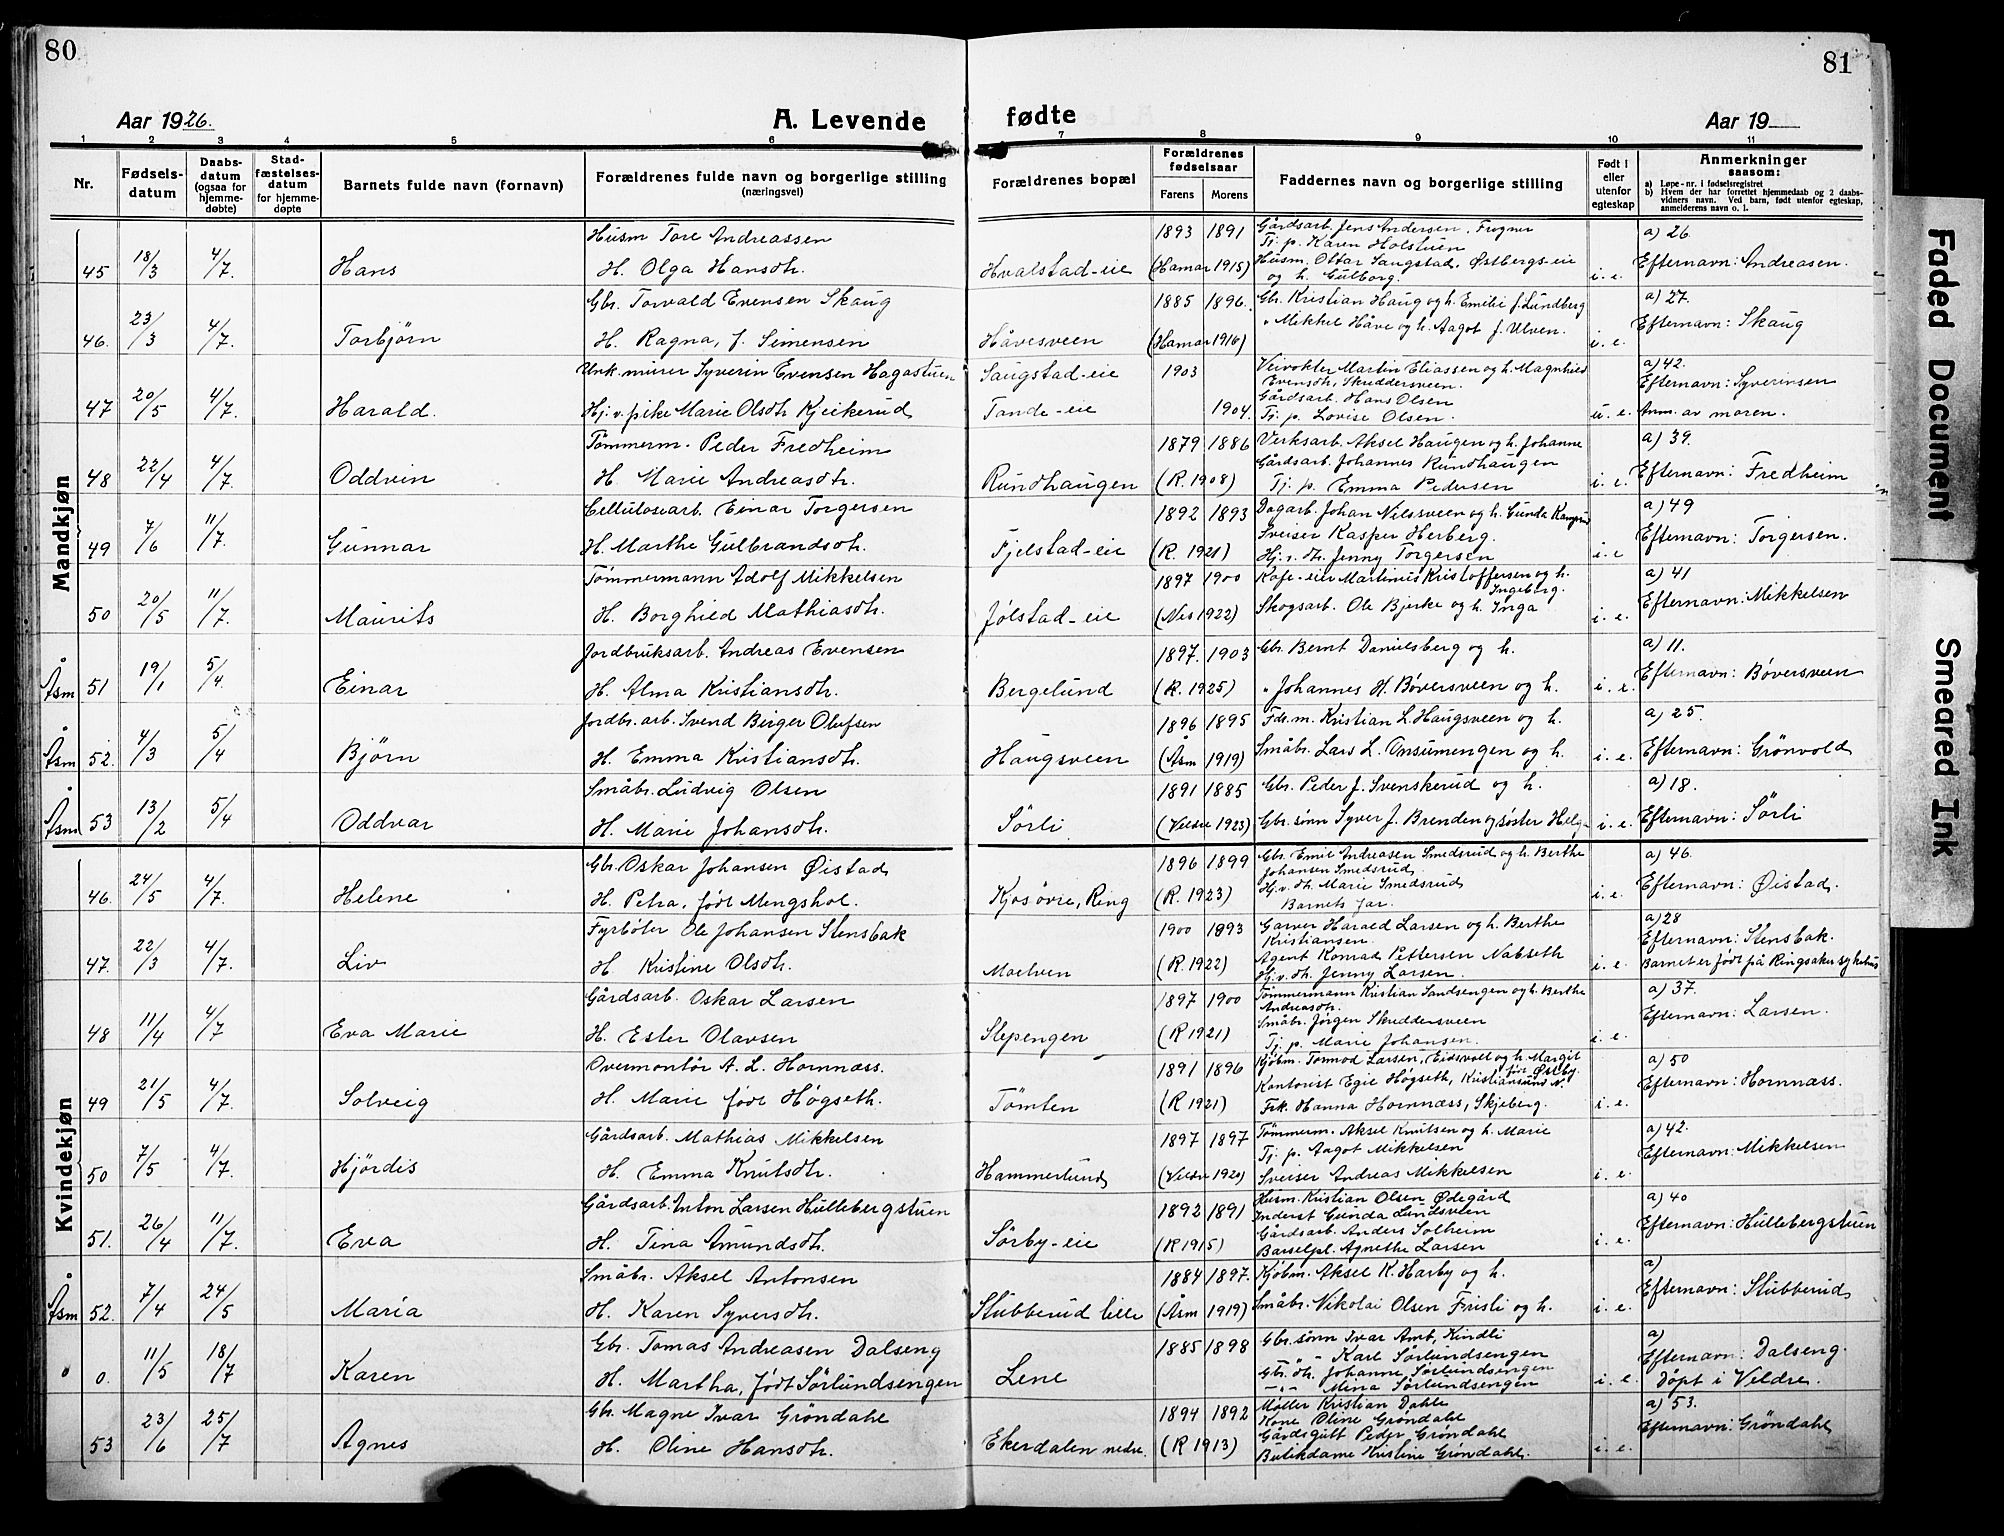 80
81
Aar 1926.
A. Levende fødte
Aar 19
1 2 3 4 5 6 7 8 9 10 11
Nr.
Fødsels-
datum
Daabs-
datum
(ogsaa for
hjemme-
døbte)
Stad-
fæstelses-
datum
for hjemme-
døpte
Barnets fulde navn (fornavn)
Forældrenes fulde navn og borgerlige stilling
(næringsvei)
Forældrenes bopæl
Forældrenes
fødselsaar
Farens Morens
Faddernes navn og borgerlige stilling
Født i
eller
utenfor
egteskap
Anmerkninger
saasom:
a) Løpe-nr. i fødselsregistret
b) Hvem der har forrettet hjemmedaab og 2 daabs-
vidners navn. Ved barn, født utenfor egteskap,
anmelderens navn o. l.
Mandkjøn
Husm Tore Andreassen 1893 1891 Gårdsarb. Jens Andersen, Frogner a) 26
Tj. p. Karen Holstuen
45 18/3 4/7 Hans H. Olga Hansdtr. Hvalstad-eie (Hamar 1915) Husm. Ottar Saugstad, Østbergs-eie i. e. Efternavn: Andreasen.
og h. Gulborg.
Gbr. Torvald Evensen Skaug 1885 1896. Gbr. Kristian Haug og h. Emilie f. Lundberg a) 27.
46. 23/3 4/7. Torbjørn H. Ragna, f. Simensen Håvesveen (Hamar 1916) " Mikkel Håve og h. Aagot f. Ulven. i. e. Efternavn: Skaug
Urk. murer Syverin Evensen Hagastuen Saugstad-eie 1903 Veivokter Martin Eliassen og h. Magnhild a) 42.
Evensdtr, Skruddersveen. Efternavn: Syverinsen
47 20/5 4/7. Harald. Hj. v. pike Marie Olsdtr Kjeikerud Tande-eie 1904. Gårdsarb. Hans Olsen
Tj. p. Lovise Olsen. u. e. Anm. av moren.
Tømmerm. Peder Fredheim 1879 1886 Verksarb. Aksel Haugen og h. Johanne a) 39.
Gårdsarb. Johannes Rundhaugen
48 22/4 4/7. Oddvin H. Marie Andreasdtr. Rundhaugen (R. 1908) Tj. p. Emma Pedersen i. e. Efternavn: Fredheim
Cellulosearb. Einar Torgersen 1892 1893 Dagarb. Johan Nilssveen og h. Gunda a) 49
Sveiser Kasper Herberg.
49 7/6 11/7. Gunnar H. Marthe Gulbrandsdtr. Fjelstad-eie (R. 1921) Hj. v. dtr. Jenny Torgersen i. e Efternavn: Torgersen.
Tømmermann Adolf Mikkelsen 1897 1900 Kafe-eier Martinus Kristoffersen og h. a) 41
Ingeborg.
50 20/5 11/7. Maurits H. Borghild Mathiasdtr. Jølstad-eie (Nes 1922) Skogsarb. Ole Bjerke og h. Inga i. e. Efternavn: Mikkelsen
Jordbruksarb. Andreas Evensen 1897. 1903 Gbr. Bernt Danielsberg og h. a) 11.
Åsm 51 19/1 5/4. Einar H. Alma Kristiansdtr. Bergelund (R. 1925) " Johannes H. Bøversveen og h. i. e. Efternavn: Bøversveen
Jordbr. arb. Svend Birger Olufsen 1896 1895 Fdr. m. Kristian L. Haugsveen og h. a) 25.
Åsm 52. 4/3 5/4 Bjørn H. Emma Kristiansdtr. Haugsveen (Åsm 1919) Småbr. Lars L. Onsumengen og h. i. e. Efternavn: Grönvold
Småbr. Ludvig Olsen 1891 1885 Gbr. Peder J. Svenskerud og h. a) 18.
Åsm 53 13/2 5/4 Oddvar H. Marie Johansdtr. Sørli (Veldre 1923) Gbr. sønn Syver J. Brenden og søster Helga i. e. Efternavn: Sørli
Kvindekjøn
Gbr. Oskar Johansen Øistad 1896 1899 Gbr. Emil Andreasen Smedsrud og h. Berthe a) 46.
Johansen Smedsrud
46. 24/5 4/7. Helene H. Petra, født Mengshol. Kjos øvre, Ring (R. 1923) Hj. v. dtr. Marie Smedsrud i. e. Efternavn: Øistad.
Barnets far.
Fyrbøter Ole Johansen Stensbak 1900 1893 Garver Harald Larsen og h. Berthe a) 28
Kristiansen. Efternavn: Stensbak.
47. 22/3 4/7. Liv H. Kristine Olsdtr. Moelven (R. 1922) Agent Konrad Pettersen Nabseth
Hj. v. dtr. Jenny Larsen. i. e. Barnet er født på Ringsaker sykehus
Gårdsarb. Oskar Larsen 1897 1900 Tømmermann Kristian Sandsengen og h. Berthe a) 37.
Andreasdtr.
48 11/4 4/7 Eva Marie H. Ester Olavsen Slepengen (R 1921) Småbr. Jørgen Skruddersveen Efternavn: Larsen.
Tj. p. Marie Johansen. i. e.
Overmontør A. L. Hornnæss. 1891 1896 Kjøbm. Tormod Larsen, Eidsvoll og h. Margit a) 50
født Østby.
Kontorist Egil Høgseth, Kristiansund N.
49 21/5 4/7 Solveig H. Marie født Høgseth. Tømten (R 1921) Frk. Hanna Hornnæss, Skjeberg. i. e. Efternavn: Hornnæss.
Gårdsarb. Mathias Mikkelsen 1897 1897 Tømmerm. Aksel Knutsen og h. Marie a) 42.
Tj. p. Aagot Mikkelsen
50 7/5 4/7. Hjördis H. Emma Knutsdtr. Hammerlund (Veldre 1920) Sveiser Andreas Mikkelsen i. e. Efternavn: Mikkelsen
Gårdsarb. Anton Larsen Hullebergstuen 1892 1891 Husm. Kristian Olsen Ødegård a) 40
Inderst Gunda Lundsveen
51. 26/4 11/7. Eva H. Tina Amundsdtr. Sørby-eie (R 1915) Gårdsarb. Anders Solheim
Barselpl. Agnethe Larsen i. e. Efternavn: Hullebergstuen
Småbr. Aksel Antonsen 1884 1897. Kjøbm. Aksel K. Harby og h. a)
Åsm 52. 7/4 24/5 Maria H. Karen Syversdtr. Stubberud lille (Åsm 1919) Småbr. Nikolai Olsen Fristi og h. i. e. Efternavn: Stubberud
Gbr. Tomas Andreasen Dalseng 1885 1898 Gbr. sønn Ivar Amt, Kindli a)
" - " - Karl Sørlundsengen
" 0. 11/5 18/7 Karen H. Martha, født Sörlundsengen Lene Gbr. dtr. Johanne Sørlundsengen Efternavn: Dalseng.
- " - Mina Sørlundsengen i. e. Døpt i Veldre.
Gbr. Magne Ivar Gröndahl 1894 1892 Møller Kristian Dahle a) 53.
Kone Oline Grøndahl
53 23/6 25/7 Agnes H. Oline Hansdtr. Ekerdalen nedre. (R 1913) Gårdsgutt Peder Grøndahl Efternavn: Gröndahl
Butikdame Kristine Grøndahl. i. e.
Faded Document
Smeared Ink